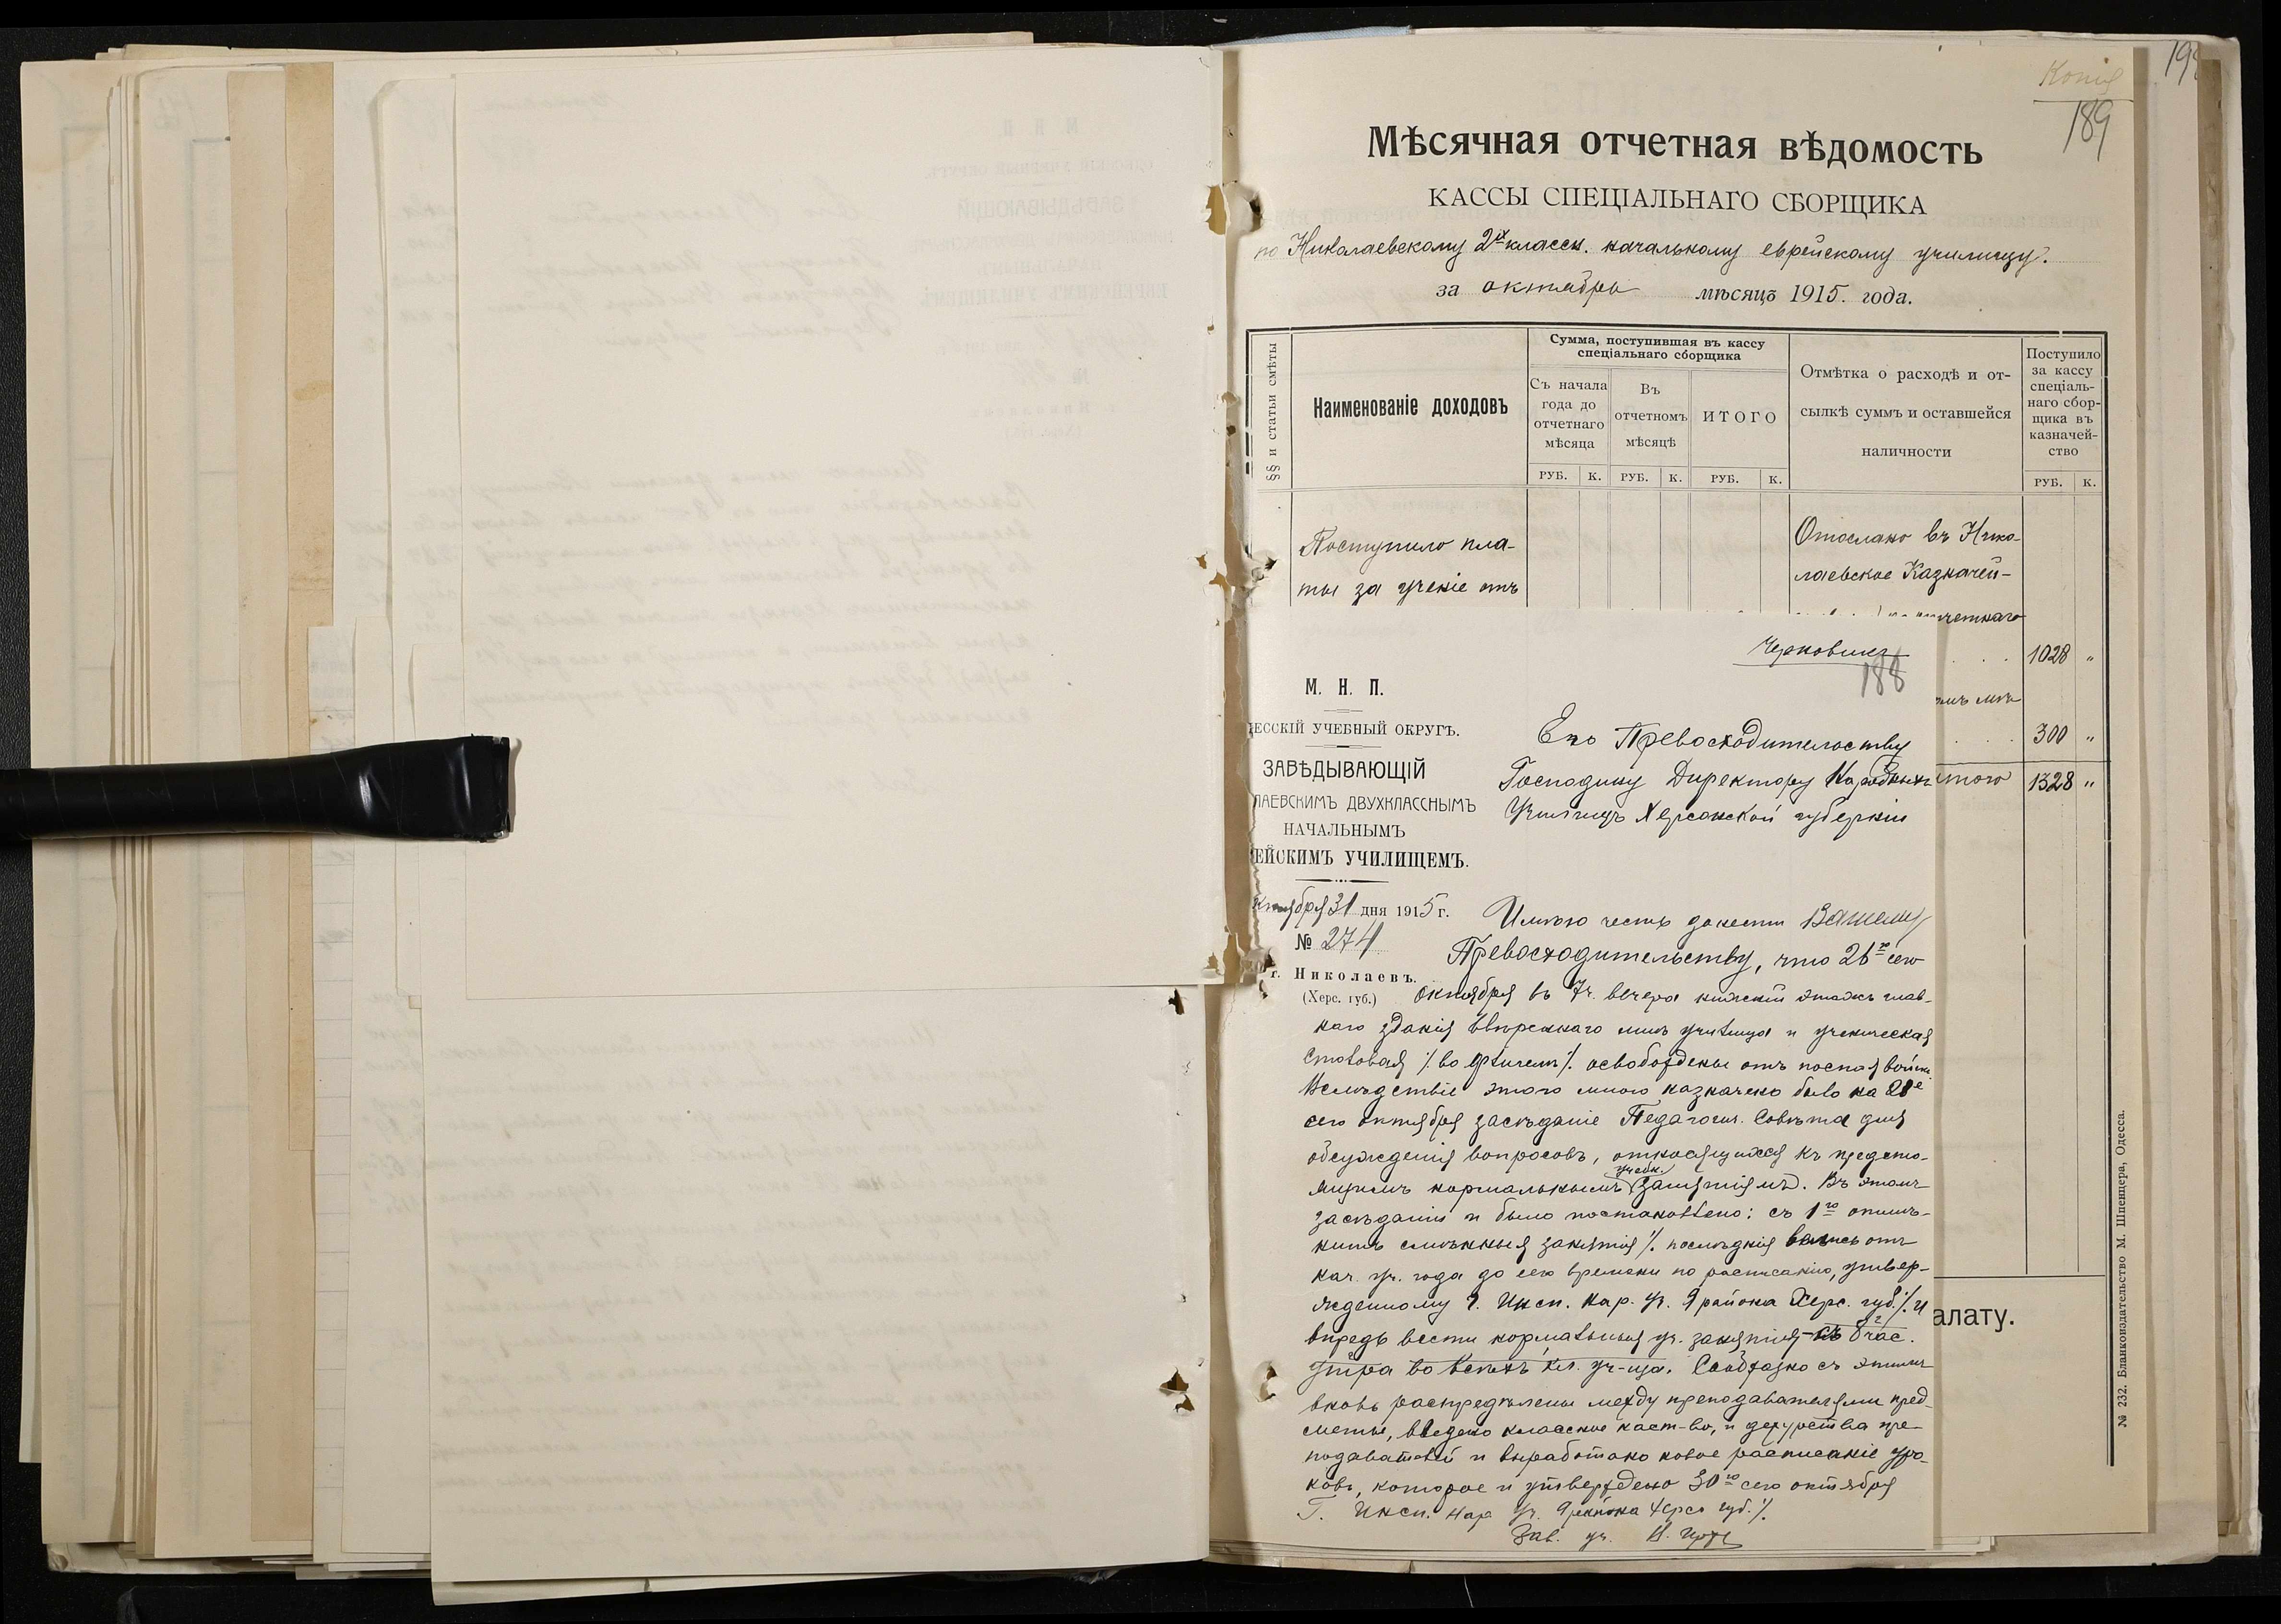 Копія
199
189
Мѣсячная отчетная вѣдомость
КАССЫ СПЕЦІАЛЬНАГО СБОРЩИКА
по Николаевскому 2х классн. начальному еврейскому училищу.
за октябрь мѣсяцъ 1915. года.
§§ и статьи смѣты
Наименованіе доходовъ
Сумма, поступившая въ кассу
спеціальнаго сборщика
Съ начала
года до
отчетнаго
мѣсяца
Въ
отчетномъ
мѣсяцѣ
ИТОГО
Отмѣтка о расходѣ и от-
сылкѣ суммъ и оставшейся
наличности
Поступило
за кассу
спеціаль-
наго сбор-
щика въ
казначей-
ство
РУБ. К. РУБ. К. РУБ. К. РУБ. К.
Поступило пла-
ты за ученіе отъ
Отослано въ Нико-
лаевское Казначей-
четнаго
1028 "
300 "
итого 1328 "
алату.
№ 232. Бланкоиздательство М. Шпенцера, Одесса.
Черновикъ
188
М. Н. П.
ДЕССКІЙ УЧЕБНЫЙ ОКРУГЪ.
ЗАВѢДЫВАЮЩІЙ
ЛАЕВСКИМЪ ДВУХКЛАССНЫМЪ
НАЧАЛЬНЫМЪ
ЕЙСКИМЪ УЧИЛИЩЕМЪ.
ктября 31 дня 1915 г.
№ 274
г. Николаевъ.
(Херс. губ.)
Его Превосходительству
Господину Директору Народныхъ
Училищъ Херсонской губерніи
Имѣю честь донести Вашему
Превосходительству, что 26го сего
октября въ 7ч. вечера нижній этажъ глав-
наго зданія ввѣреннаго мнѣ училища и ученическая
столовая /. во флигелѣ /. освобождены отъ постоя войскъ.
Вслѣдствіе этого мною назначено было на 28е
сего октября засѣданіе Педагогич. Совѣта для
обсужденія вопросовъ, относящихся къ предсто-
ящимъ нормальнымъ учебн. занятіямъ. Въ этомъ
засѣданіи и было постановлено: съ 1го отмѣ-
нить смѣнныя занятія /. послѣднія велись отъ
нач. уч. года до сего времени по расписанію, утвер-
жденному Г. Инсп. Нар. Уч. 9 района Херс. губ. /. и
впредь вести нормальныя уч. занятія съ 8 час.
утра во всѣхъ кл. уч-ща. Сообразно съ этимъ
вновь распредѣлены между преподавателями пред-
меты, введено классное наст-во, и дежурства пре-
подавателей и выработано новое расписаніе уро-
ковъ, которое и утверждено 30го сего октября
Г. Инсп. Нар. Уч. 9 района Херс. губ. /.
Зав. уч.